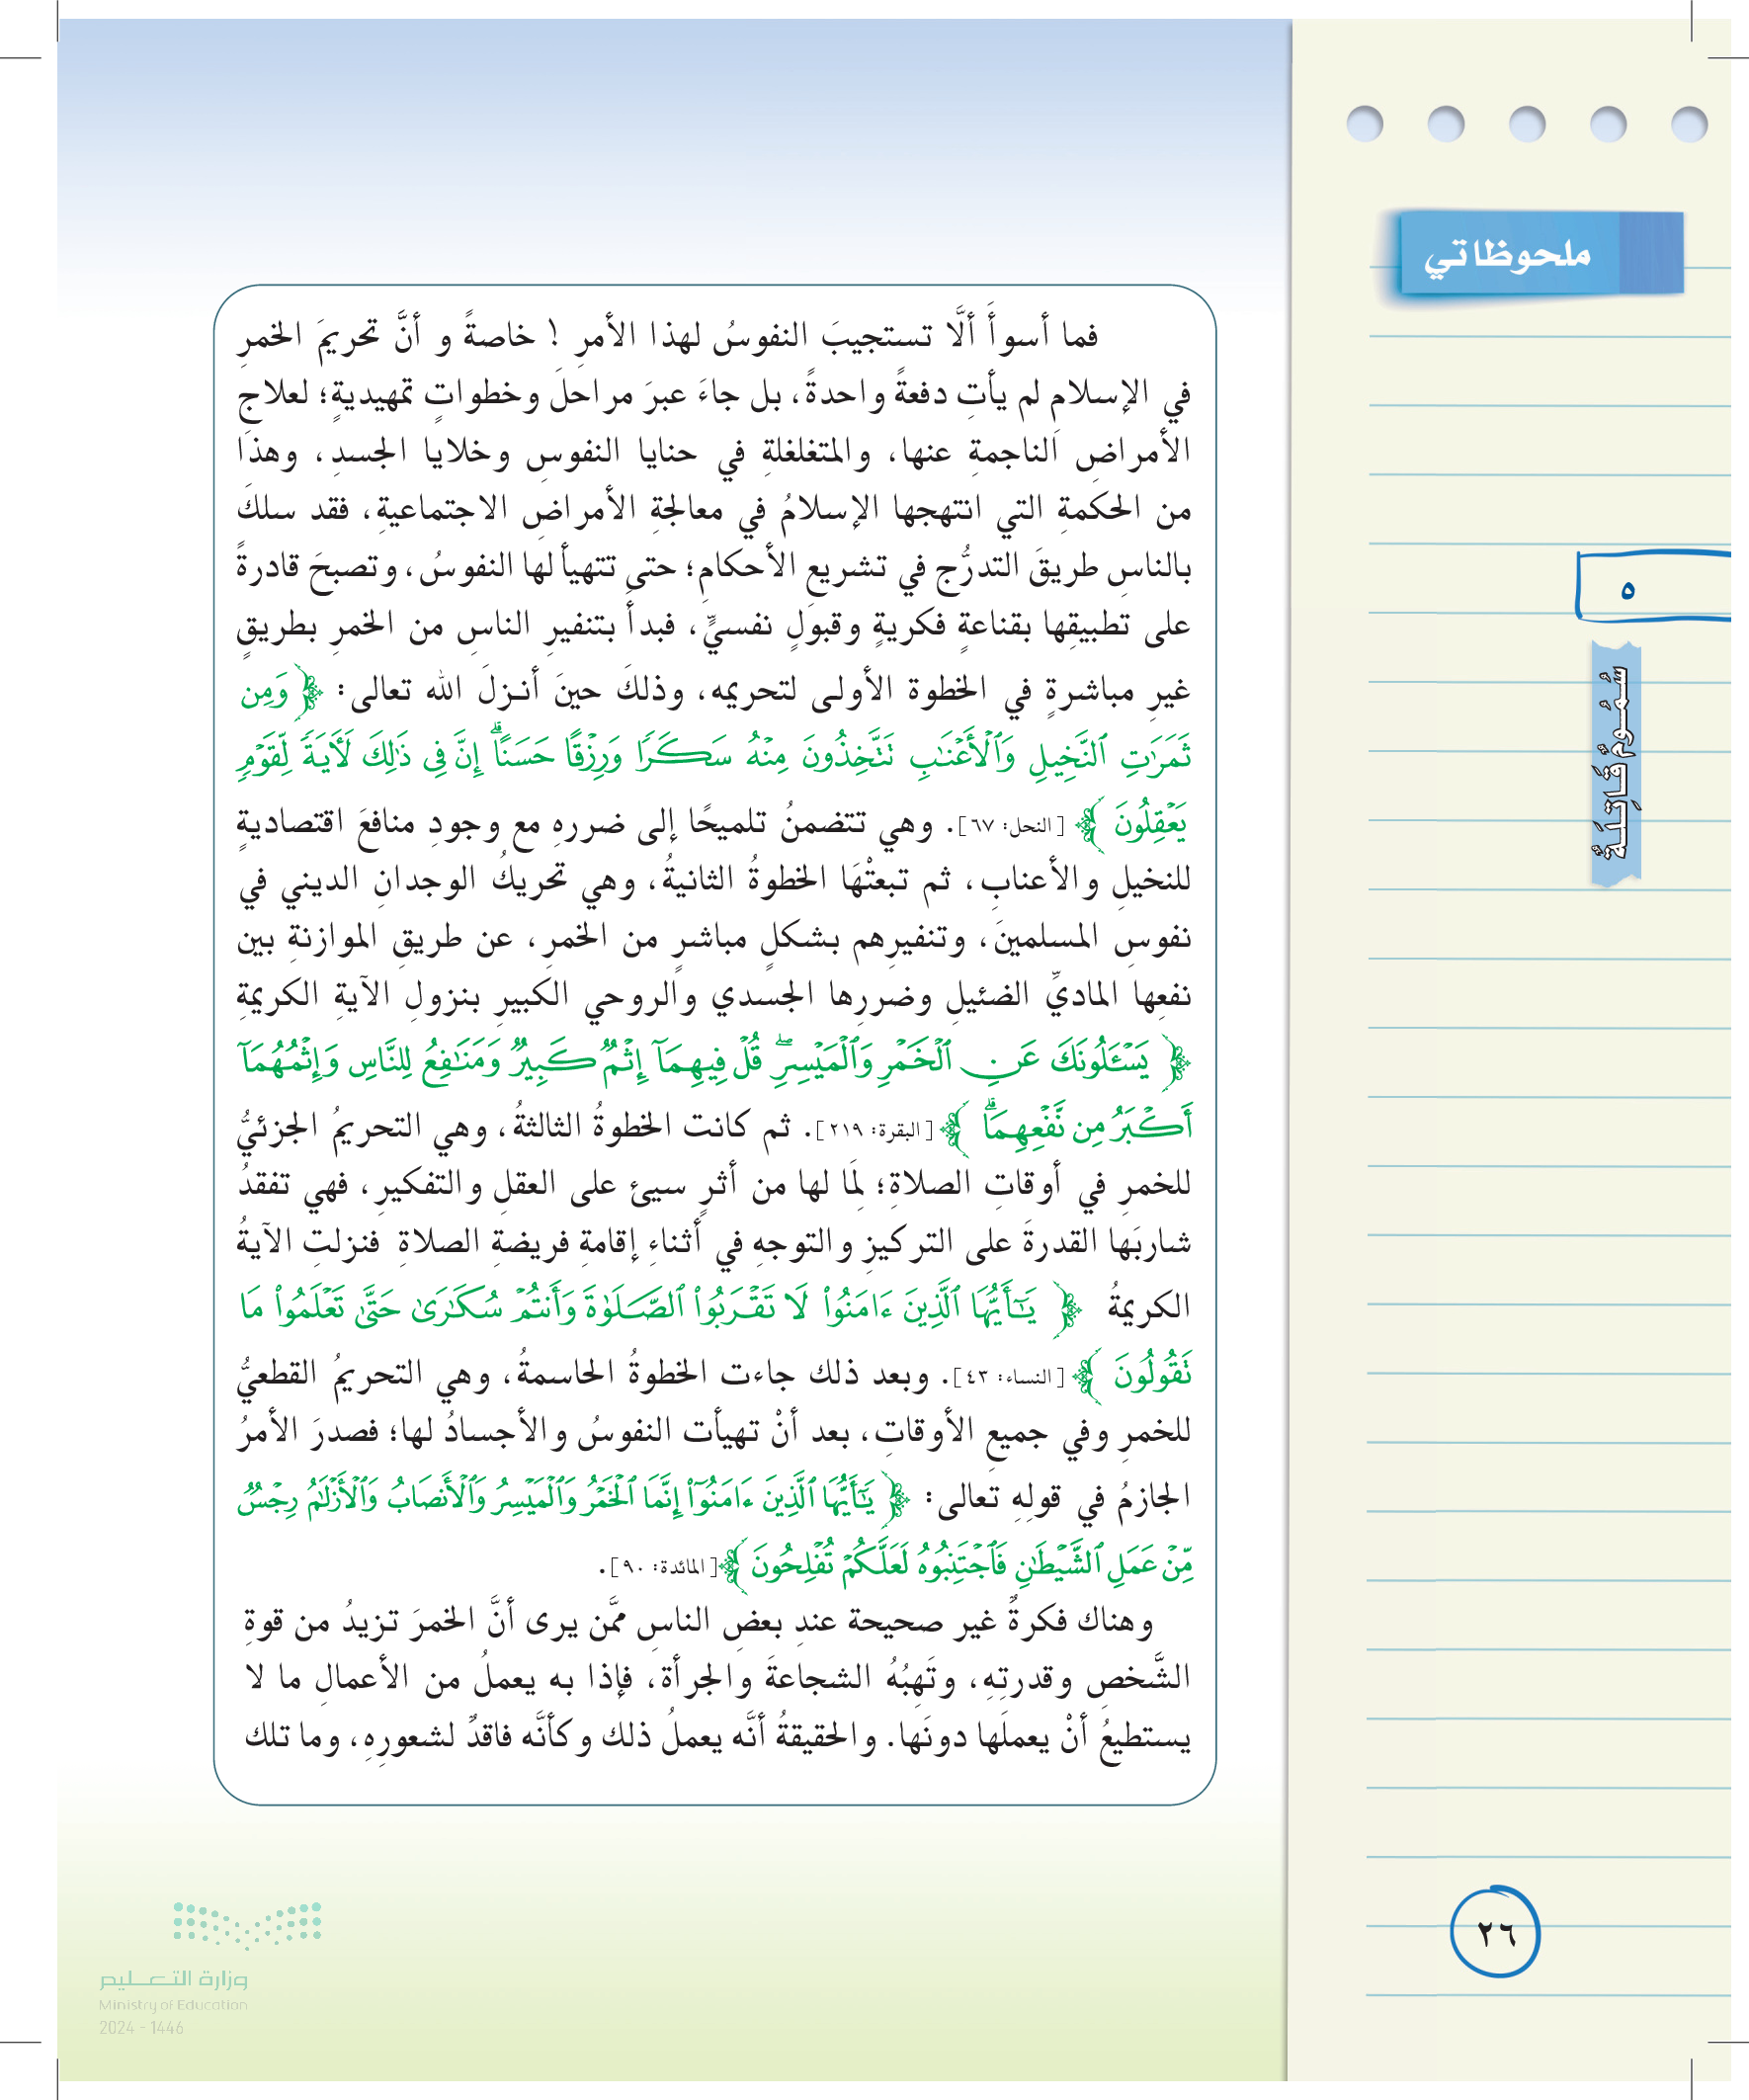 ملحوظاتي
٥
سُمُومٌ قَاتِلَةٌ
فما أسوأَ ألَّا تستجيبَ النفوسُ لهذا الأمرِ ! خاصةً و أنَّ تحريمَ الخمرِ
في الإسلامِ لم يأتِ دفعةً واحدةً، بل جاءَ عبرَ مراحلَ وخطواتٍ تمهيديةٍ؛ لعلاجِ
الأمراضِ الناجمةِ عنها، والمتغلغلةِ في حنايا النفوسِ وخلايا الجسدِ، وهذا
من الحكمةِ التي انتهجها الإسلامُ في معالجةِ الأمراضِ الاجتماعيةِ، فقد سلكَ
بالناسِ طريقَ التدرُّج في تشريعِ الأحكامِ؛ حتى تتهيأ لها النفوسُ، وتصبحَ قادرةً
على تطبيقِها بقناعةٍ فكريةٍ وقبولٍ نفسيٍّ، فبدأَ بتنفيرِ الناسِ من الخمرِ بطريقٍ
غيرِ مباشرةٍ في الخطوة الأولى لتحريمه، وذلكَ حينَ أنـزلَ الله تعالى: ﴿ وَمِن
ثَمَرَٰتِ ٱلنَّخِيلِ وَٱلْأَعْنَٰبِ تَتَّخِذُونَ مِنْهُ سَكَرًا وَرِزْقًا حَسَنًاۗ إِنَّ فِى ذَٰلِكَ لَأٓيَةً لِّقَوْمٍ
يَعْقِلُونَ ﴾ [النحل: ٦٧]. وهي تتضمنُ تلميحًا إلى ضررهِ مع وجودِ منافعَ اقتصاديةٍ
للنخيلِ والأعنابِ، ثم تبعتْهَا الخطوةُ الثانيةُ، وهي تحريكُ الوجدانِ الديني في
نفوسِ المسلمينَ، وتنفيرِهم بشكلٍ مباشرٍ من الخمرِ، عن طريقِ الموازنةِ بين
نفعِها الماديِّ الضئيلِ وضررِها الجسدي والروحي الكبيرِ بنزولِ الآيةِ الكريمةِ
﴿ يَسْـَٔلُونَكَ عَنِ ٱلْخَمْرِ وَٱلْمَيْسِرِۖ قُلْ فِيهِمَآ إِثْمٌ كَبِيرٌ وَمَنَٰفِعُ لِلنَّاسِ وَإِثْمُهُمَآ
أَكْبَرُ مِن نَّفْعِهِمَاۗ ﴾ [البقرة: ٢١٩]. ثم كانت الخطوةُ الثالثةُ، وهي التحريمُ الجزئيُّ
للخمرِ في أوقاتِ الصلاةِ؛ لِمَا لها من أثرٍ سيئ على العقلِ والتفكيرِ، فهي تفقدُ
شاربَها القدرةَ على التركيزِ والتوجهِ في أثناءِ إقامةِ فريضةِ الصلاةِ فنزلتِ الآيةُ
الكريمةُ ﴿ يَٰٓأَيُّهَا ٱلَّذِينَ ءَامَنُوا۟ لَا تَقْرَبُوا۟ ٱلصَّلَوٰةَ وَأَنتُمْ سُكَٰرَىٰ حَتَّىٰ تَعْلَمُوا۟ مَا
تَقُولُونَ ﴾ [النساء: ٤٣]. وبعد ذلك جاءت الخطوةُ الحاسمةُ، وهي التحريمُ القطعيُّ
للخمرِ وفي جميعِ الأوقاتِ، بعد أنْ تهيأت النفوسُ والأجسادُ لها؛ فصدرَ الأمرُ
الجازمُ في قولِهِ تعالى: ﴿ يَٰٓأَيُّهَا ٱلَّذِينَ ءَامَنُوٓا۟ إِنَّمَا ٱلْخَمْرُ وَٱلْمَيْسِرُ وَٱلْأَنصَابُ وَٱلْأَزْلَٰمُ رِجْسٌ
مِّنْ عَمَلِ ٱلشَّيْطَٰنِ فَٱجْتَنِبُوهُ لَعَلَّكُمْ تُفْلِحُونَ ﴾[المائدة: ٩٠].
وهناك فكرةٌ غير صحيحة عندِ بعضِ الناسِ ممَّن يرى أنَّ الخمرَ تزيدُ من قوةِ
الشَّخصِ وقدرتِهِ، وتَهِبُهُ الشجاعةَ والجرأة، فإذا به يعملُ من الأعمالِ ما لا
يستطيعُ أنْ يعملَها دونَها. والحقيقةُ أنَّه يعملُ ذلك وكأنَّه فاقدٌ لشعورِهِ، وما تلك
٢٦
وزارة التعليم
Ministry of Education
2024 - 1446